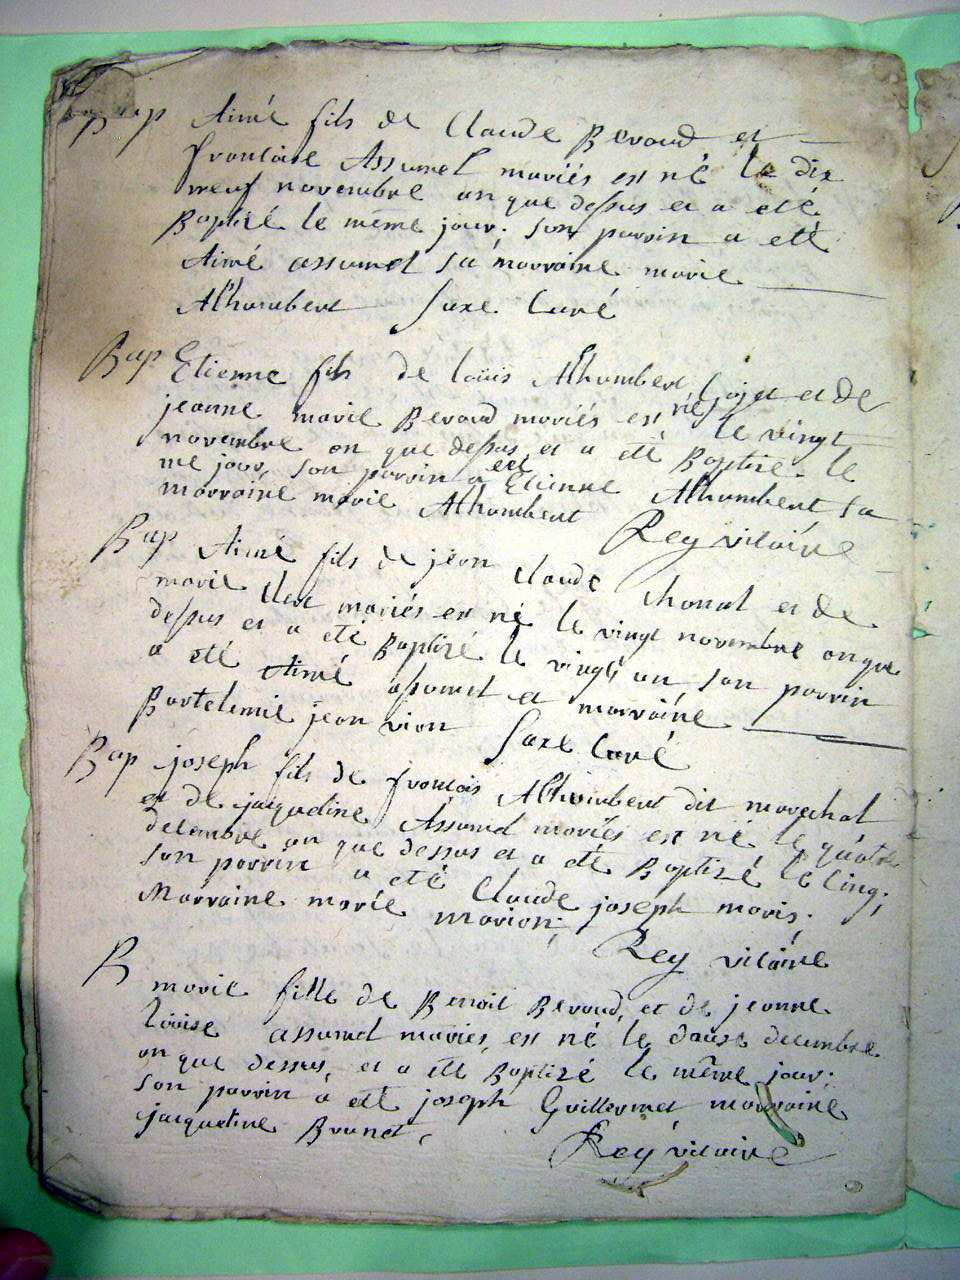 Bap Aimé fils de Claude Beroud et
francoise Assumel mariés est né le dix
neuf novembre an que dessus et a eté
Baptizé le même jour. son parrin a eté
Aimé assumel sa marraine marie
Alhumbert Saxe Curé
Bap Etienne fils de loüis Alhumbert Gojet et de
jeanne marie Beroud mariés est né le vingt
novembre an que dessus et a eté Baptizé le
me jour, son parrin a eté Etienne Alhumbert sa
marraine marie Alhumbert Rey vicaire
Bap Aimé fils de jean Claude Chonal et de
marie mariés est né le vingt novembre an que
dessus et a eté Baptizé le vingt un son parrin
a eté Aimé assumel et marraine
Bartelemie jean vion Saxe Curé
Bap joseph fils de francois Alhumbert dit marechal
et de jacqueline Assumel mariés est né le quatre
decembre an que dessus et a eté Baptizé le cinq,
son parrin a eté Claude joseph maris.
Marraine marie marion. Rey vicaire
B marie fille de Benoit Beroud, et de jeanne
loüise assumel mariés, est né le douse decembre
an que dessus, et a eté Baptizé le même jour.
son parrin a eté joseph Guillermet marraine
jacqueline Brunet, Rey vicaire